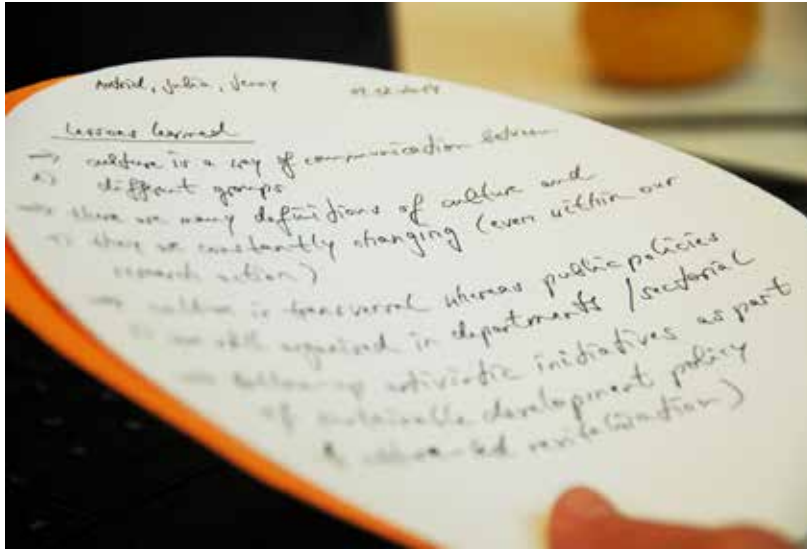 Astrid, Julia, Jenny
Lessons learned
→ culture is a way of communication between
different groups
→ there are many definitions of culture and
there are constantly changing (even within our
research action)
→ culture is transversal whereas public policies
are still organised in departments / sectorial
→ bottom-up artivistic initiatives as part
of sustainable development policy
culture-led revitalization)